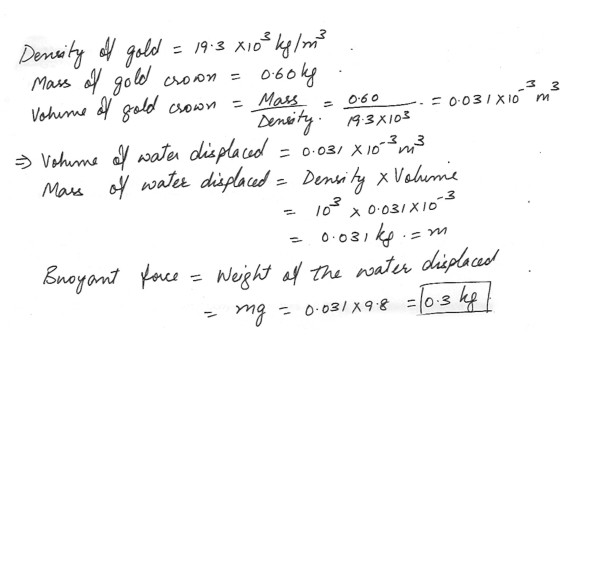 Density of gold = 19.3 ×10³ kg/m³.
Mass of gold crown = 0.60 kg.
Volume of gold crown = Mass/Density. = 0.60/19.3×10³. = 0.031×10⁻³ m³
⇒ Volume of water displaced = 0.031 ×10⁻³ m³
Mass of water displaced = Density × Volume
= 10³ × 0.031×10⁻³
= 0.031 kg. = m
Buoyant force = Weight of the water displaced
= mg = 0.031×9.8 = 0.3 kg